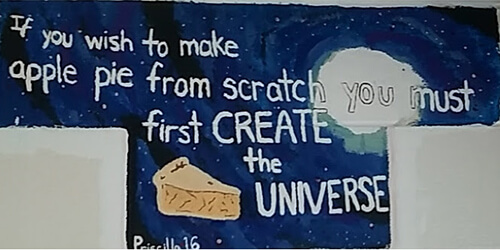 If you wish to make
apple pie from scratch you must
first CREATE
the
UNIVERSE
Priscilla 16